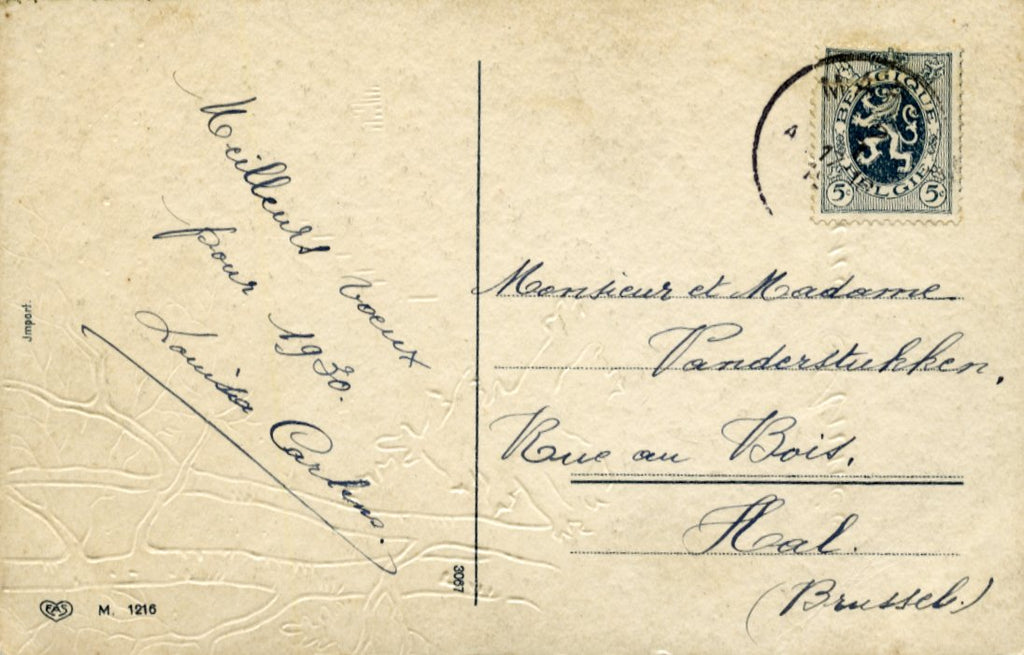 Meilleurs voeux
pour 1930.
Louisa
Jmport.
EAS M. 1216
3067
BELGIQUE
BELGIE
5c 5c
Monsieur et Madame
Vanderstukken,
Rue au Bois,
Hal.
(Brussel.)